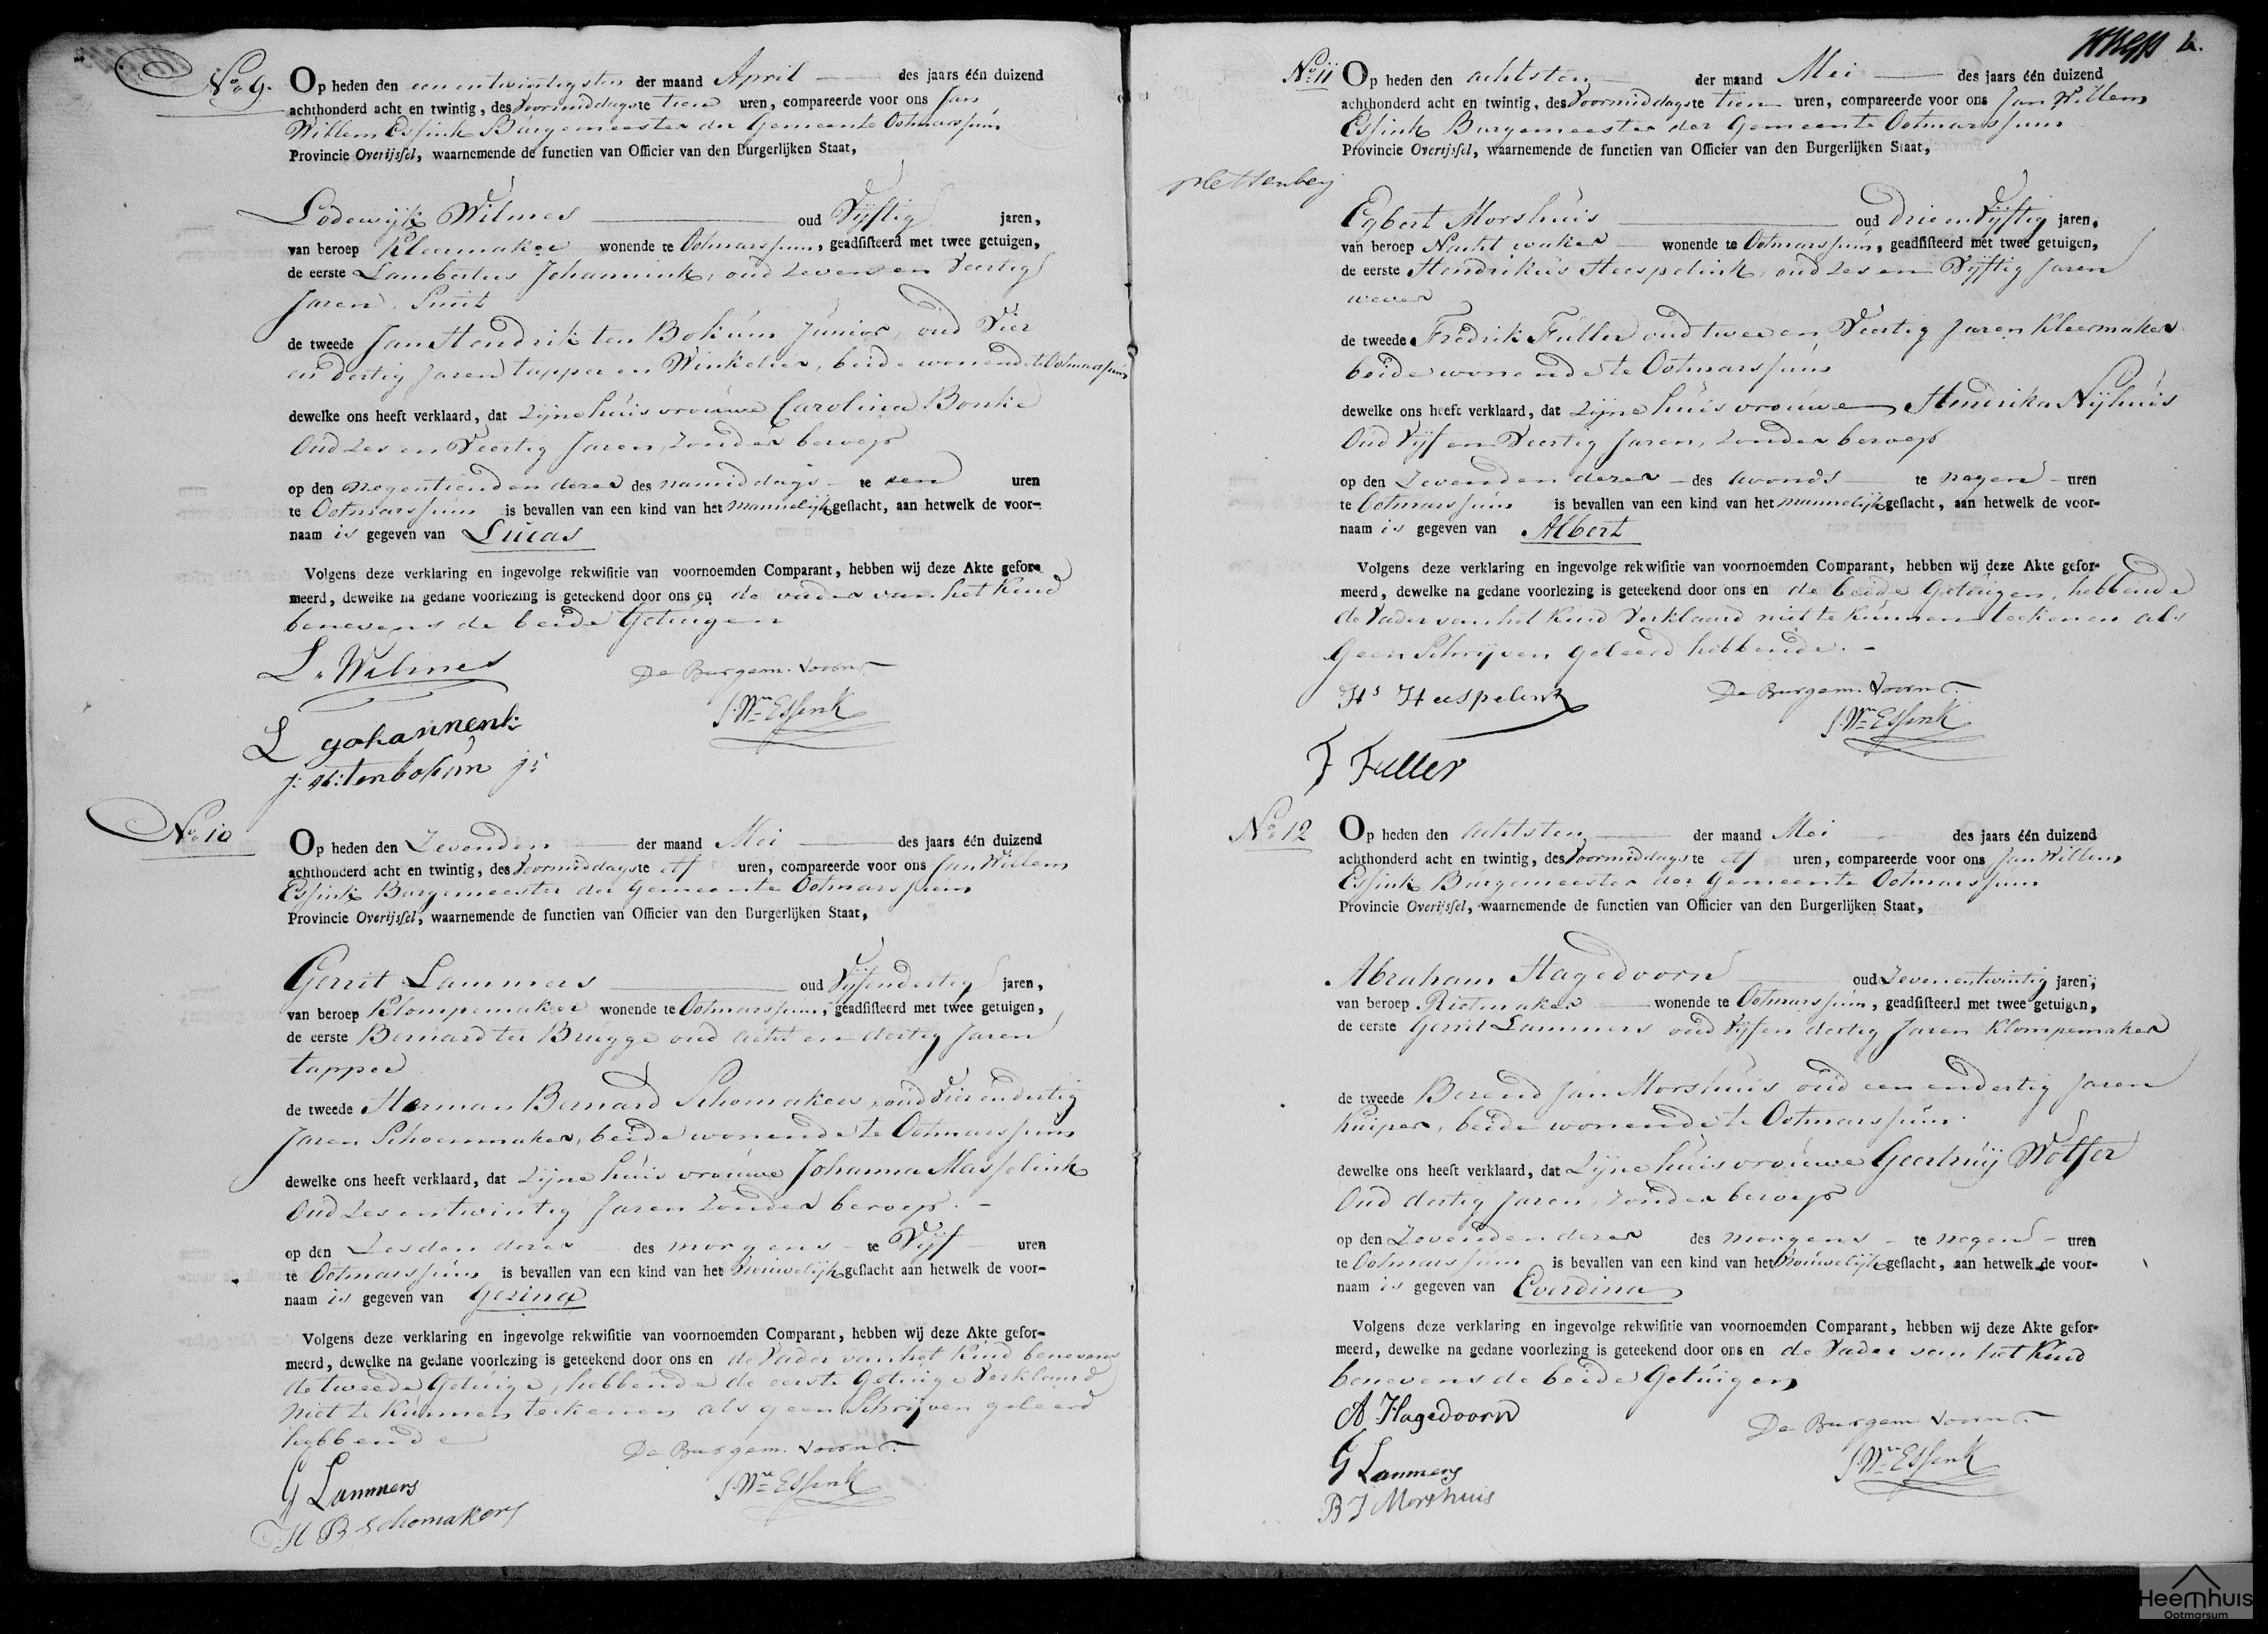 No 9. Op heden den een entwintigsten der maand April des jaars één duizend
achthonderd acht en twintig, des Voormiddags te tien uren, compareerde voor ons Jan
Willem Essink Burgemeester der Gemeente Ootmarssum
Provincie Overijssel, waarnemende de functien van Officier van den Burgerlijken Staat,
Lodewijk Wilmes oud Vijftig jaren,
van beroep Kleermaker wonende te Ootmarssum, geadsisteerd met twee getuigen,
de eerste Lambertus Johannink, oud Zeven en Veertig
Jaren, Smit
de tweede Jan Hendrik ten Bokum Junior, oud Vier
en dertig Jaren tapper en Winkelier, beide wonende te Ootmarssum
dewelke ons heeft verklaard, dat Zijne huisvrouwe Carolina Bonke
Oud Zes en Veertig Jaren, Zonder beroep
op den negentienden dezer des namiddags te een uren
te Ootmarssum is bevallen van een kind van het mannelijk geslacht, aan hetwelk de voor-
naam is gegeven van Lucas
Volgens deze verklaring en ingevolge rekwisitie van voornoemden Comparant, hebben wij deze Akte gefor-
meerd, dewelke na gedane voorlezing is geteekend door ons en de vader van het Kind
benevens de beide Getuigen
L. Wilmes
De Burgem. Voorn.
J. Wm Essink
L gohannenk
J: H: tenbokum jr
No 10
Op heden den Zevenden der maand Mei des jaars één duizend
achthonderd acht en twintig, des Voormiddags te elf uren, compareerde voor ons Jan Willem
Essink Burgemeester der Gemeente Ootmarssum
Provincie Overijssel, waarnemende de functien van Officier van den Burgerlijken Staat,
Gerrit Lammers oud Vijfendertig jaren,
van beroep Klompemaker wonende te Ootmarssum, geadsisteerd met twee getuigen,
de eerste Bernard ter Brugge oud acht en dertig Jaren
tapper
de tweede Herman Bernard Schomakers, oud Vier en dertig
Jaren Schoenmaker, beide wonende te Ootmarssum
dewelke ons heeft verklaard, dat Zijne huisvrouwe Johanna Masselink
Oud Zes entwintig Jaren Zonder beroep.
op den Zesden dezer des morgens te Vijf uren
te Ootmarssum is bevallen van een kind van het Vrouwelijk geslacht aan hetwelk de voor-
naam is gegeven van Gezina
Volgens deze verklaring en ingevolge rekwisitie van voornoemden Comparant, hebben wij deze Akte gefor-
meerd, dewelke na gedane voorlezing is geteekend door ons en de Vader van het Kind benevens
de tweede Getuige, hebbende de eerste Getuige Verklaard
niet te Kunnen teekenen als geen Schrijven geleerd
hebbende
De Burgem. Voorn.
J. Wm Essink
G Lammers
H B schomakers
No 11 Op heden den achtsten der maand Mei des jaars één duizend
achthonderd acht en twintig, des Voormiddags te tien uren, compareerde voor ons Jan Willem
Essink Burgemeester der Gemeente Ootmarssum
Provincie Overijssel, waarnemende de functien van Officier van den Burgerlijken Staat,
Egbert Morshuis oud Drie en Vijftig jaren,
van beroep Nacht waker wonende te Ootmarssum, geadsisteerd met twee getuigen,
de eerste Hendrikus Heespelink, oud Zes en Vijftig Jaren
wever
de tweede Fredrik Fuller oud twee en Veertig Jaren Kleermaker
beide wonende te Ootmarssum
dewelke ons heeft verklaard, dat Zijne huisvrouwe Hendrika Nijhuis
Oud Vijf en Veertig Jaren, Zonder beroep
op den Zevenden dezer des avonds te negen uren
te Ootmarssum is bevallen van een kind van het mannelijk geslacht, aan hetwelk de voor-
naam is gegeven van Albert
Volgens deze verklaring en ingevolge rekwisitie van voornoemden Comparant, hebben wij deze Akte gefor-
meerd, dewelke na gedane voorlezing is geteekend door ons en de beide Getuigen, hebbende
de Vader van het Kind Verklaard niet te Kunnen teekenen als
Geen Schrijven geleerd hebbende.
Hs Heespelink
De Burgem. Voorn.
J. Wm Essink
F Fuller
No 12 Op heden den achtsten der maand Mei des jaars één duizend
achthonderd acht en twintig, des Voormiddags te elf uren, compareerde voor ons Jan Willem
Essink Burgemeester der Gemeente Ootmarssum
Provincie Overijssel, waarnemende de functien van Officier van den Burgerlijken Staat,
Abraham Hagedoorn oud Zeven entwintig jaren,
van beroep Rietmaker wonende te Ootmarssum, geadsisteerd met twee getuigen,
de eerste Gerrit Lammers oud Vijf en dertig Jaren Klompemaker
de tweede Berend Jan Morshuis oud een en dertig Jaren
Kuiper, beide wonende te Ootmarssum
dewelke ons heeft verklaard, dat Zijne huisvrouwe Geertruij Wolfer
Oud dertig Jaren, Zonder beroep
op den Zevenden dezer des morgens te negen uren
te Ootmarssum is bevallen van een kind van het Vrouwelijk geslacht, aan hetwelk de voor-
naam is gegeven van Everdina
Volgens deze verklaring en ingevolge rekwisitie van voornoemden Comparant, hebben wij deze Akte gefor-
meerd, dewelke na gedane voorlezing is geteekend door ons en de Vader van het Kind
benevens de beide Getuigen
A Hagedoorn
De Burgem. Voorn.
J. Wm Essink
G Lammers
B J Morshuis
Heemhuis
Ootmarsum